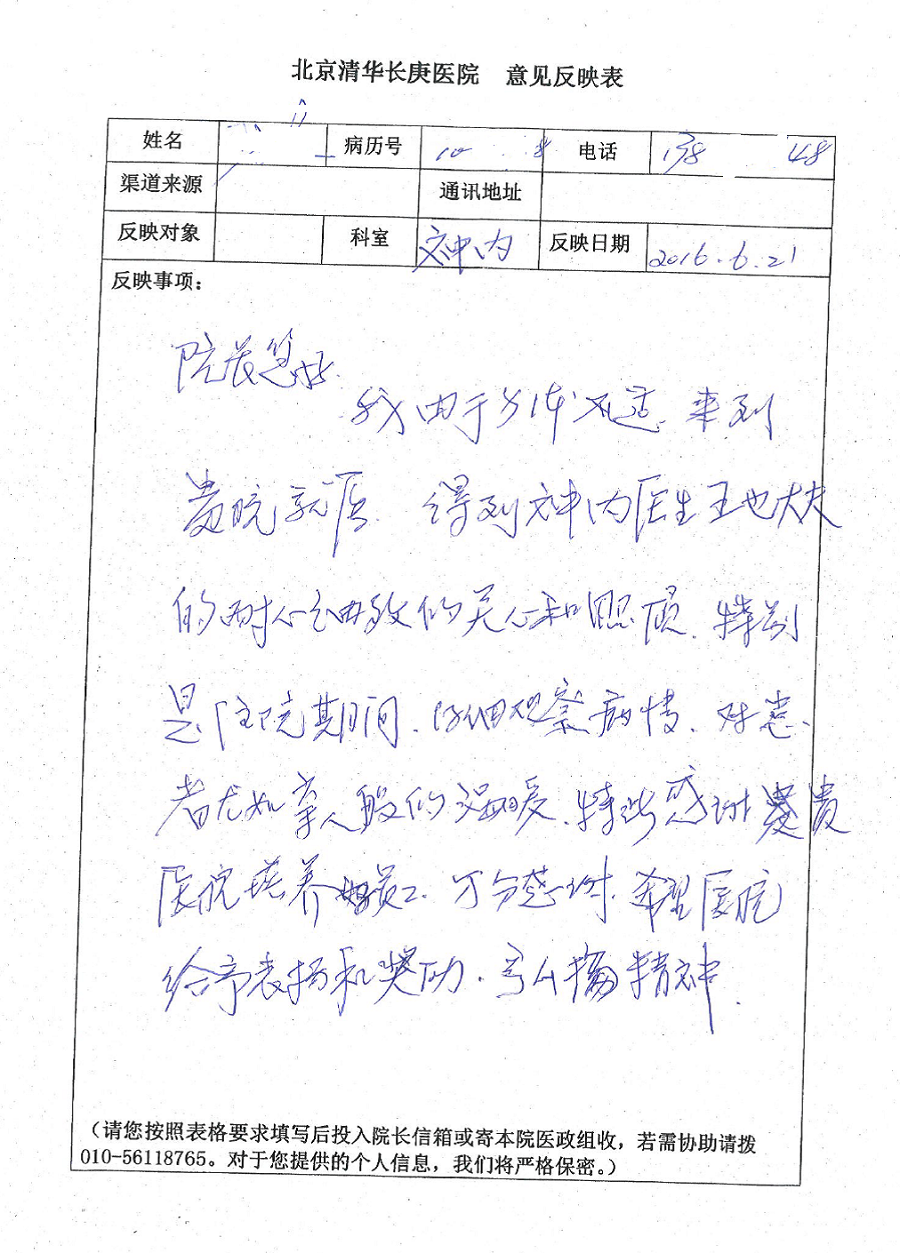 北京清华长庚医院 意见反映表
姓名 病历号 10 8 电话 138 48
渠道来源 通讯地址
反映对象 科室 神内 反映日期 2016.6.21
反映事项：
院长您好.
我由于身体不适.来到
贵院就医.得到神内医生王也大夫
的耐心细致的关心和照顾.特别
是住院期间.仔细观察病情.对患
者尤如亲人般的温暖.特此感谢贵
医院培养好员工.万分感谢.希望医院
给予表扬和奖励.弘扬精神.
（请您按照表格要求填写后投入院长信箱或寄本院医政组收，若需协助请拨
010-56118765。对于您提供的个人信息，我们将严格保密。）